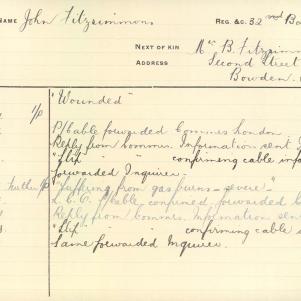 NAME John Fitzsimmons REG. &C. 32nd Ba
NEXT OF KIN Mr. B. Fitzsimm
ADDRESS Second Street
Bowden.
1/p "Wounded"
P/Cable forwarded Commrs London.
Reply from Commrs. Information sent
" " " confirming cable info
forwarded Inquirer.
further "Suffering from gas burns - severe"
Cable confirmed, forwarded
Reply from Commrs. Information sent
" " " confirming cable
Same forwarded Inquirer.